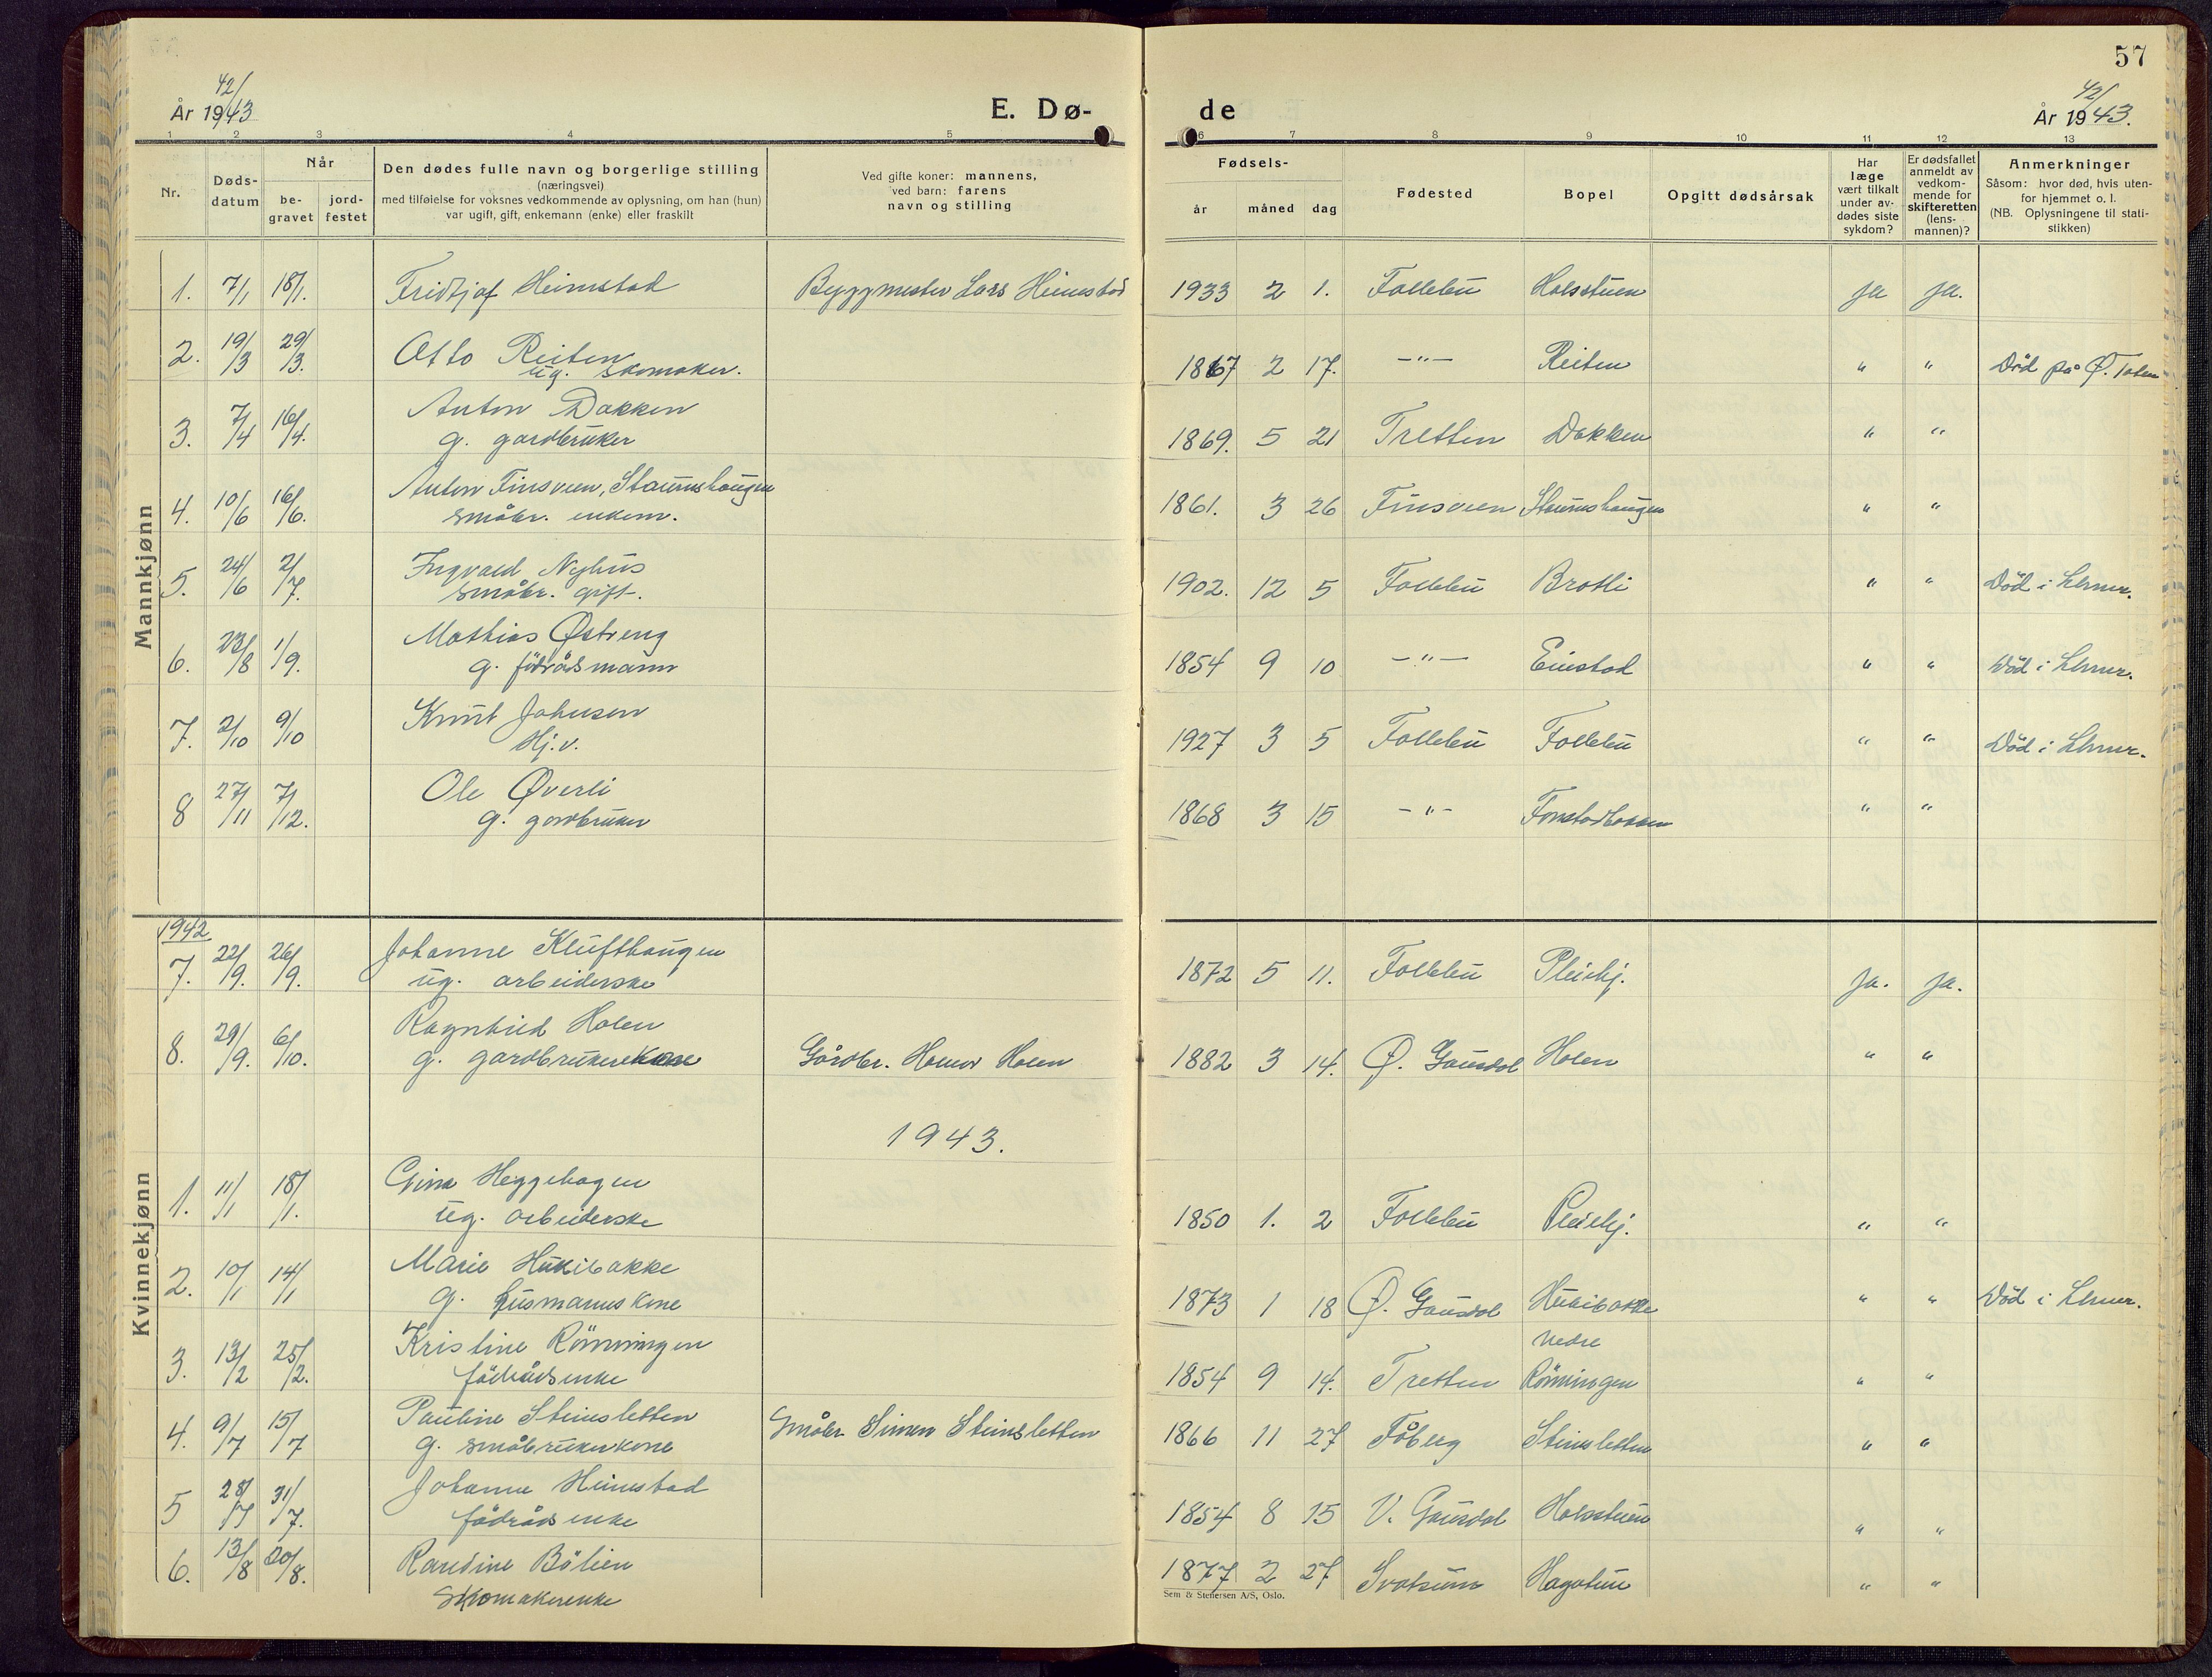 57
42/
År 1943
E. Dø-
de
42/
År 1943.
1 2 3 4 5 6 7 8 9 10 11 12 13
Nr.
Døds-
datum
Når
be-
gravet
jord-
festet
Den dødes fulle navn og borgerlige stilling
(næringsvei)
med tilføielse for voksnes vedkommende av oplysning, om han (hun)
var ugift, gift, enkemann (enke) eller fraskilt
Ved gifte koner: mannens,
ved barn: farens
navn og stilling
Fødsels-
år måned dag
Fødested
Bopel
Opgitt dødsårsak
Har
læge
vært tilkalt
under av-
dødes siste
sykdom?
Er dødsfallet
anmeldt av
vedkom-
mende for
skifteretten
(lens-
mannen)?
Anmerkninger
Såsom: hvor død, hvis uten-
for hjemmet o. l.
(NB. Oplysningene til stati-
stikken)
Mannkjønn
1. 7/1 18/1. Fridtjof Heimstad Byggmester Lars Heimstad 1933 2 1. Follebu Holsstuen ja ja.
2. 19/3 29/3. Otto Reiten 1867 2 17. -"- Reiten " " Död på Ø. Toten
ug. skomaker.
3. 7/4 16/4. Anton Dakken 1869. 5 21 Tretten Dakken " "
g. gardbruker
4. 10/6 16/6. Anton Finsveen, Staurushaugen 1861. 3 26 Finsveen Staurushaugen " "
småbr. enkem.
5. 24/6 2/7. Ingvald Nyhus 1902. 12 5 Follebu Brotli " " Död i Lhmr.
småbr. gift.
6. 23/8 1/9. Mathias Østreng 1854 9 10 -"- Einstad " " Död i Lhmr.
g. födrådsmann
7. 2/10 9/10 Knut Johnsen 1927 3 5 Follebu Follebu " " Död i Lhmr.
Hj.v.
8 27/11 7/12. Ole Øverli 1868 3 15 -"- Fonstadbakken " "
g. gardbruker
Kvinnekjønn
1942
7. 22/9. 26/9. Johanne Klufthaugen 1872 5 11. Follebu Pleiehj. ja. ja.
ug. arbeiderske
8. 29/9. 6/10. Ragnhild Holen Gårdbr. Holen 1882 3 14. Ø. Gausdal Holen " "
g. gardbrukerkone
1943.
1. 11/1 18/1. Gina Heggehagen 1850 1. 2 Follebu Pleiehj. " "
ug. arbeiderske
2. 10/1 14/1 Marie Hukibakke 1873 1 18 Ø. Gausdal Hukibakke " " Död i Lhmr.
g. husmannskone
nedre
3. 13/2 25/2. Kristine Rönningen 1854 9 14. Tretten Rönningen " "
födrådsenke
4. 9/7 15/7 Pauline Steinsletten Småbr Simen Steinsletten 1866 11 27 Fåberg Steinsletten " "
g. småbrukerkone
5 28/7 31/7. Johanne Heimstad 1854 8 15 V. Gausdal Holsstuen " "
födråds enke
6. 13/8 20/8. Randine Bölien 1877 2 27 Svatsum Hagatun " "
Skomakerenke
Sem & Stenersen A/S, Oslo.